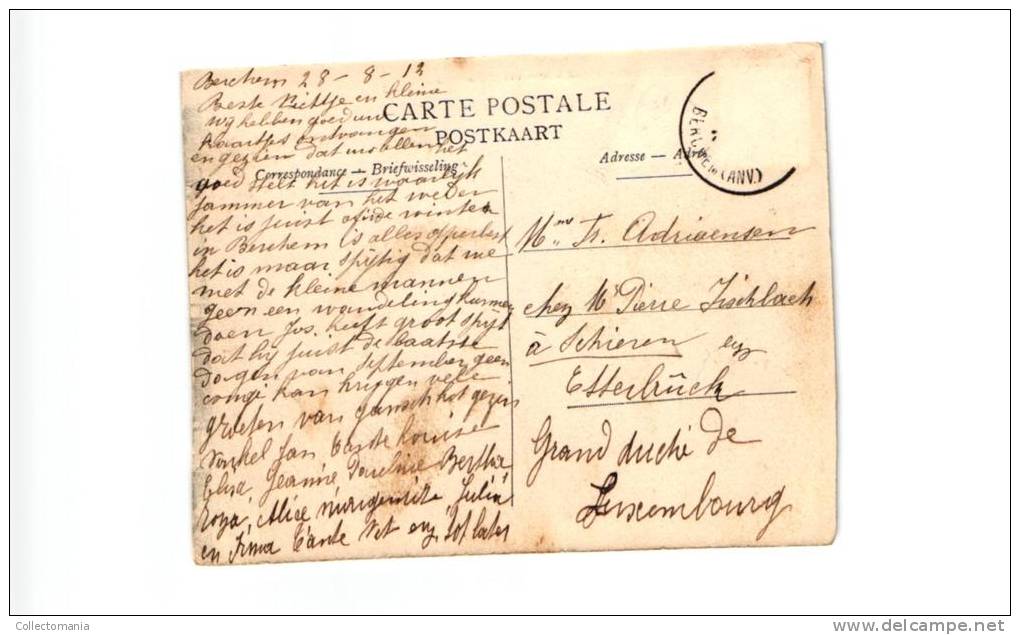 Berchem 28-8-12
Beste Nichtje en kleine
wy hebben goed uw
CARTE POSTALE
kaartjes ontvangen
POSTKAART
en gezien dat met allen het
Correspondance — Briefwisseling
goed stelt het is waarlyk
jammer van het weder
het is juist of in de winter
in Berchem is alles opperbest
het is maar spijtig dat we
met de kleine mannen
geen een wandeling kunnen
doen Jos. heeft groot spijt
dat hy juist de laatste
dagen van September geen
congé kan krijgen vele
groeten van gansch het gezin
Nonkel Jan Tante Louise
Elisa, Jeanne Pauline Bertha
Roza, Alice Julia
en Irma Tante Net enz. tot later
Adresse —
BERCHEM (ANV.)
Mme Fr. Adriaensen
chez Mr Pierre Fischbach
à Schieren
Ettelbrück
Grand duché de
Luxembourg
Collectomania
www.delcampe.net